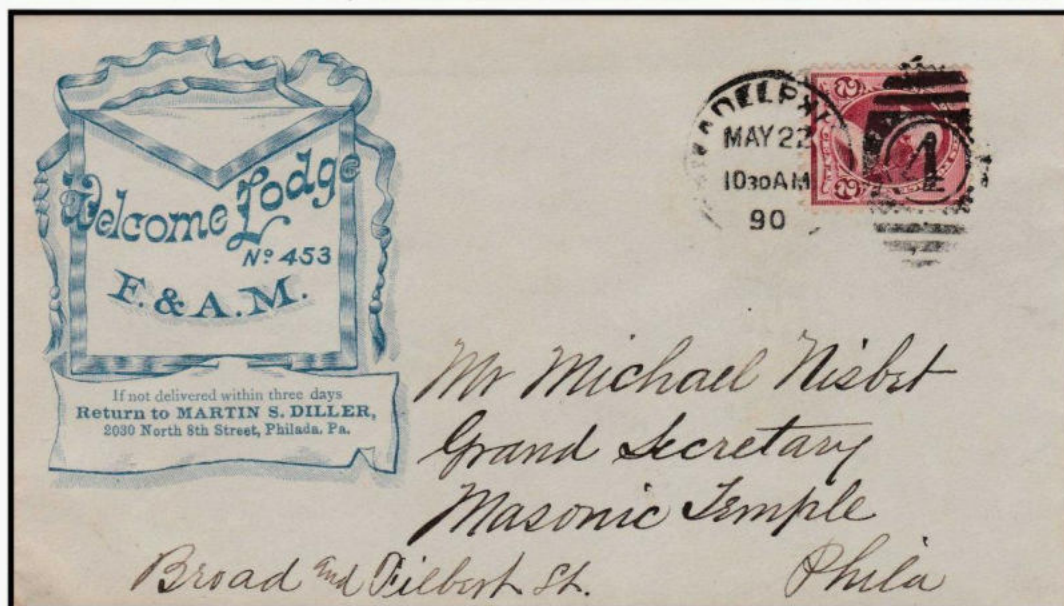 Welcome Lodge
No 453
F. & A. M.
If not delivered within three days
Return to MARTIN S. DILLER,
2030 North 8th Street, Philada. Pa.
MAY 22
10 30 AM
90
1
Mr Michael Nisbet
Grand Secretary
Masonic Temple
Broad and Filbert St.
Phila